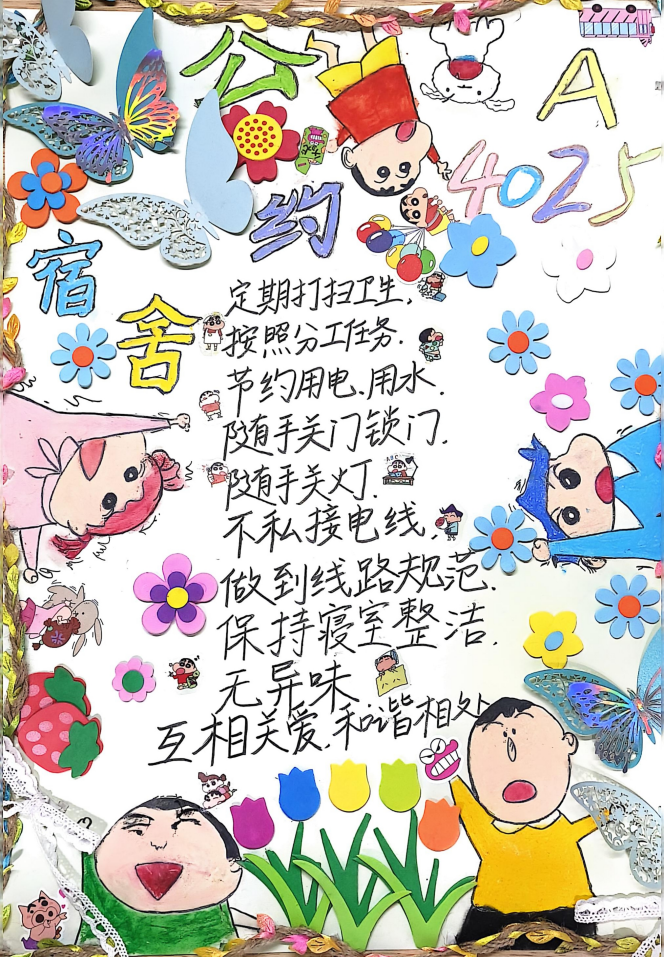 公约
A4025
宿舍
定期打扫卫生,
按照分工任务.
节约用电、用水.
随手关门锁门.
随手关灯.
不私接电线,
做到线路规范.
保持寝室整洁.
无异味.
互相关爱.和谐相处